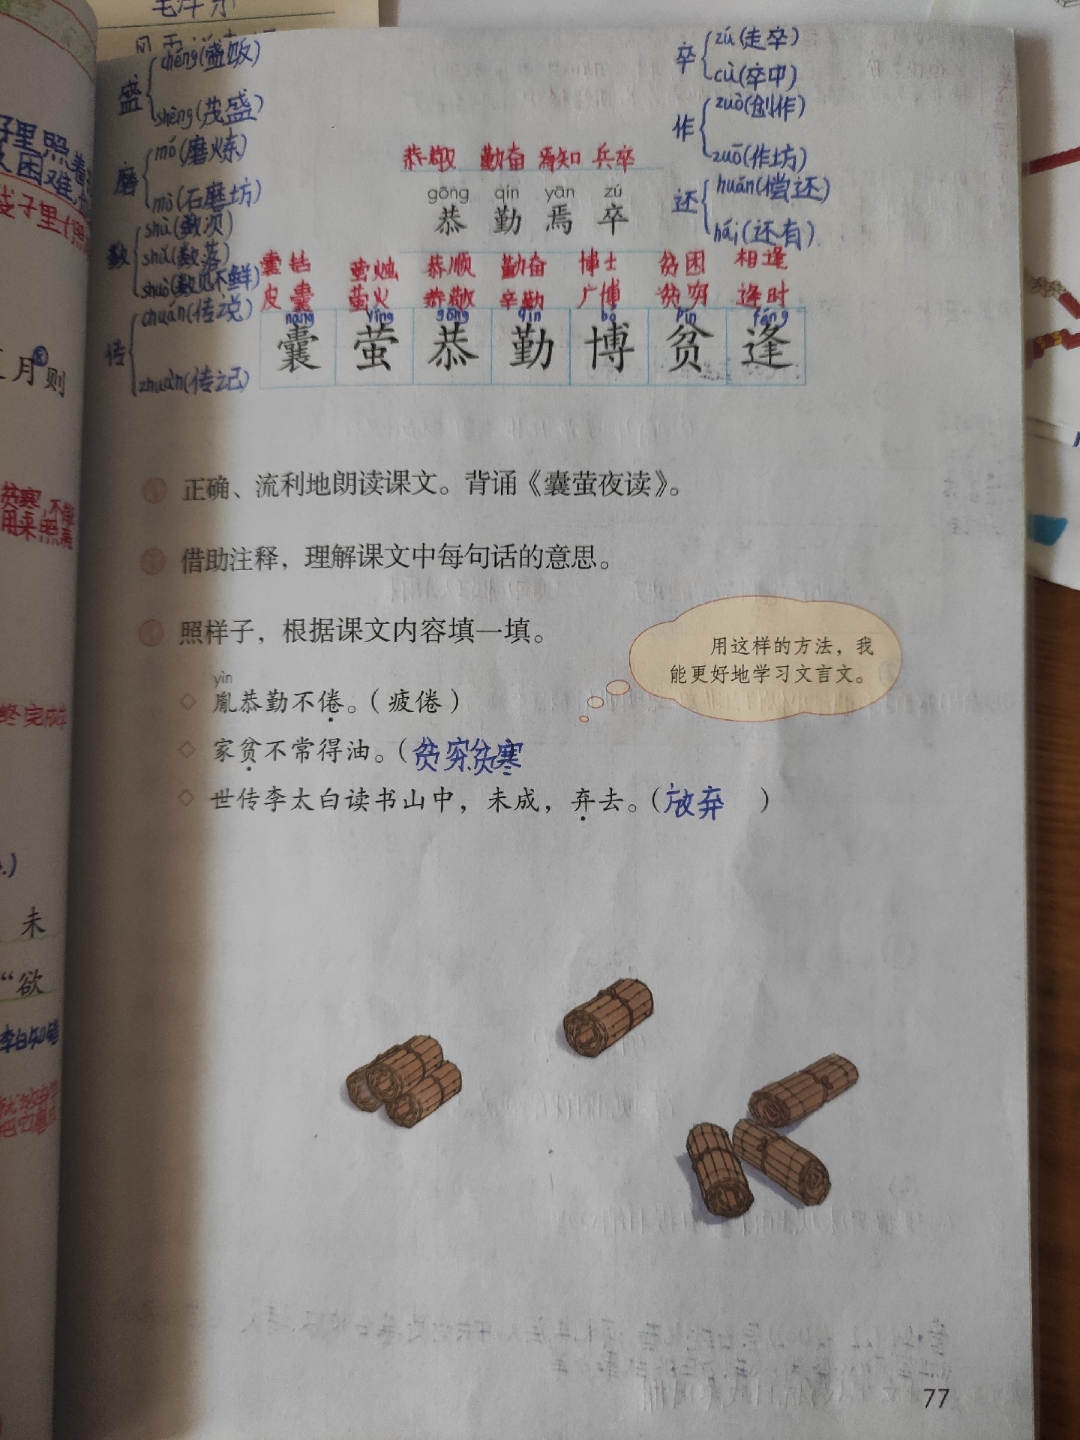 盛
chéng(盛饭)
shèng(茂盛)
磨
mó(磨炼)
mò(石磨坊)
数
shù(数次)
shǔ(数落)
shuò(数见不鲜)
传
chuán(传说)
zhuàn(传记)
卒
zú(走卒)
cù(卒中)
作
zuò(创作)
zuō(作坊)
还
huán(偿还)
hái(还有)
恭敬 勤奋 焉知 兵卒
gōng qín yān zú
恭 勤 焉 卒
囊括 萤烛 恭顺 勤奋 博士 贫困 相逢
皮囊 萤火 恭敬 辛勤 广博 贫穷 逢时
náng yíng gōng qín bó pín féng
囊 萤 恭 勤 博 贫 逢
正确、流利地朗读课文。背诵《囊萤夜读》。
借助注释，理解课文中每句话的意思。
照样子，根据课文内容填一填。
用这样的方法，我
能更好地学习文言文。
yìn
胤恭勤不倦。（疲倦）
家贫不常得油。（贫穷贫寒
世传李太白读书山中，未成，弃去。（放弃 ）
77
好里照着
困难
袋子里
月则
贫寒，不
用来照
未
“欲